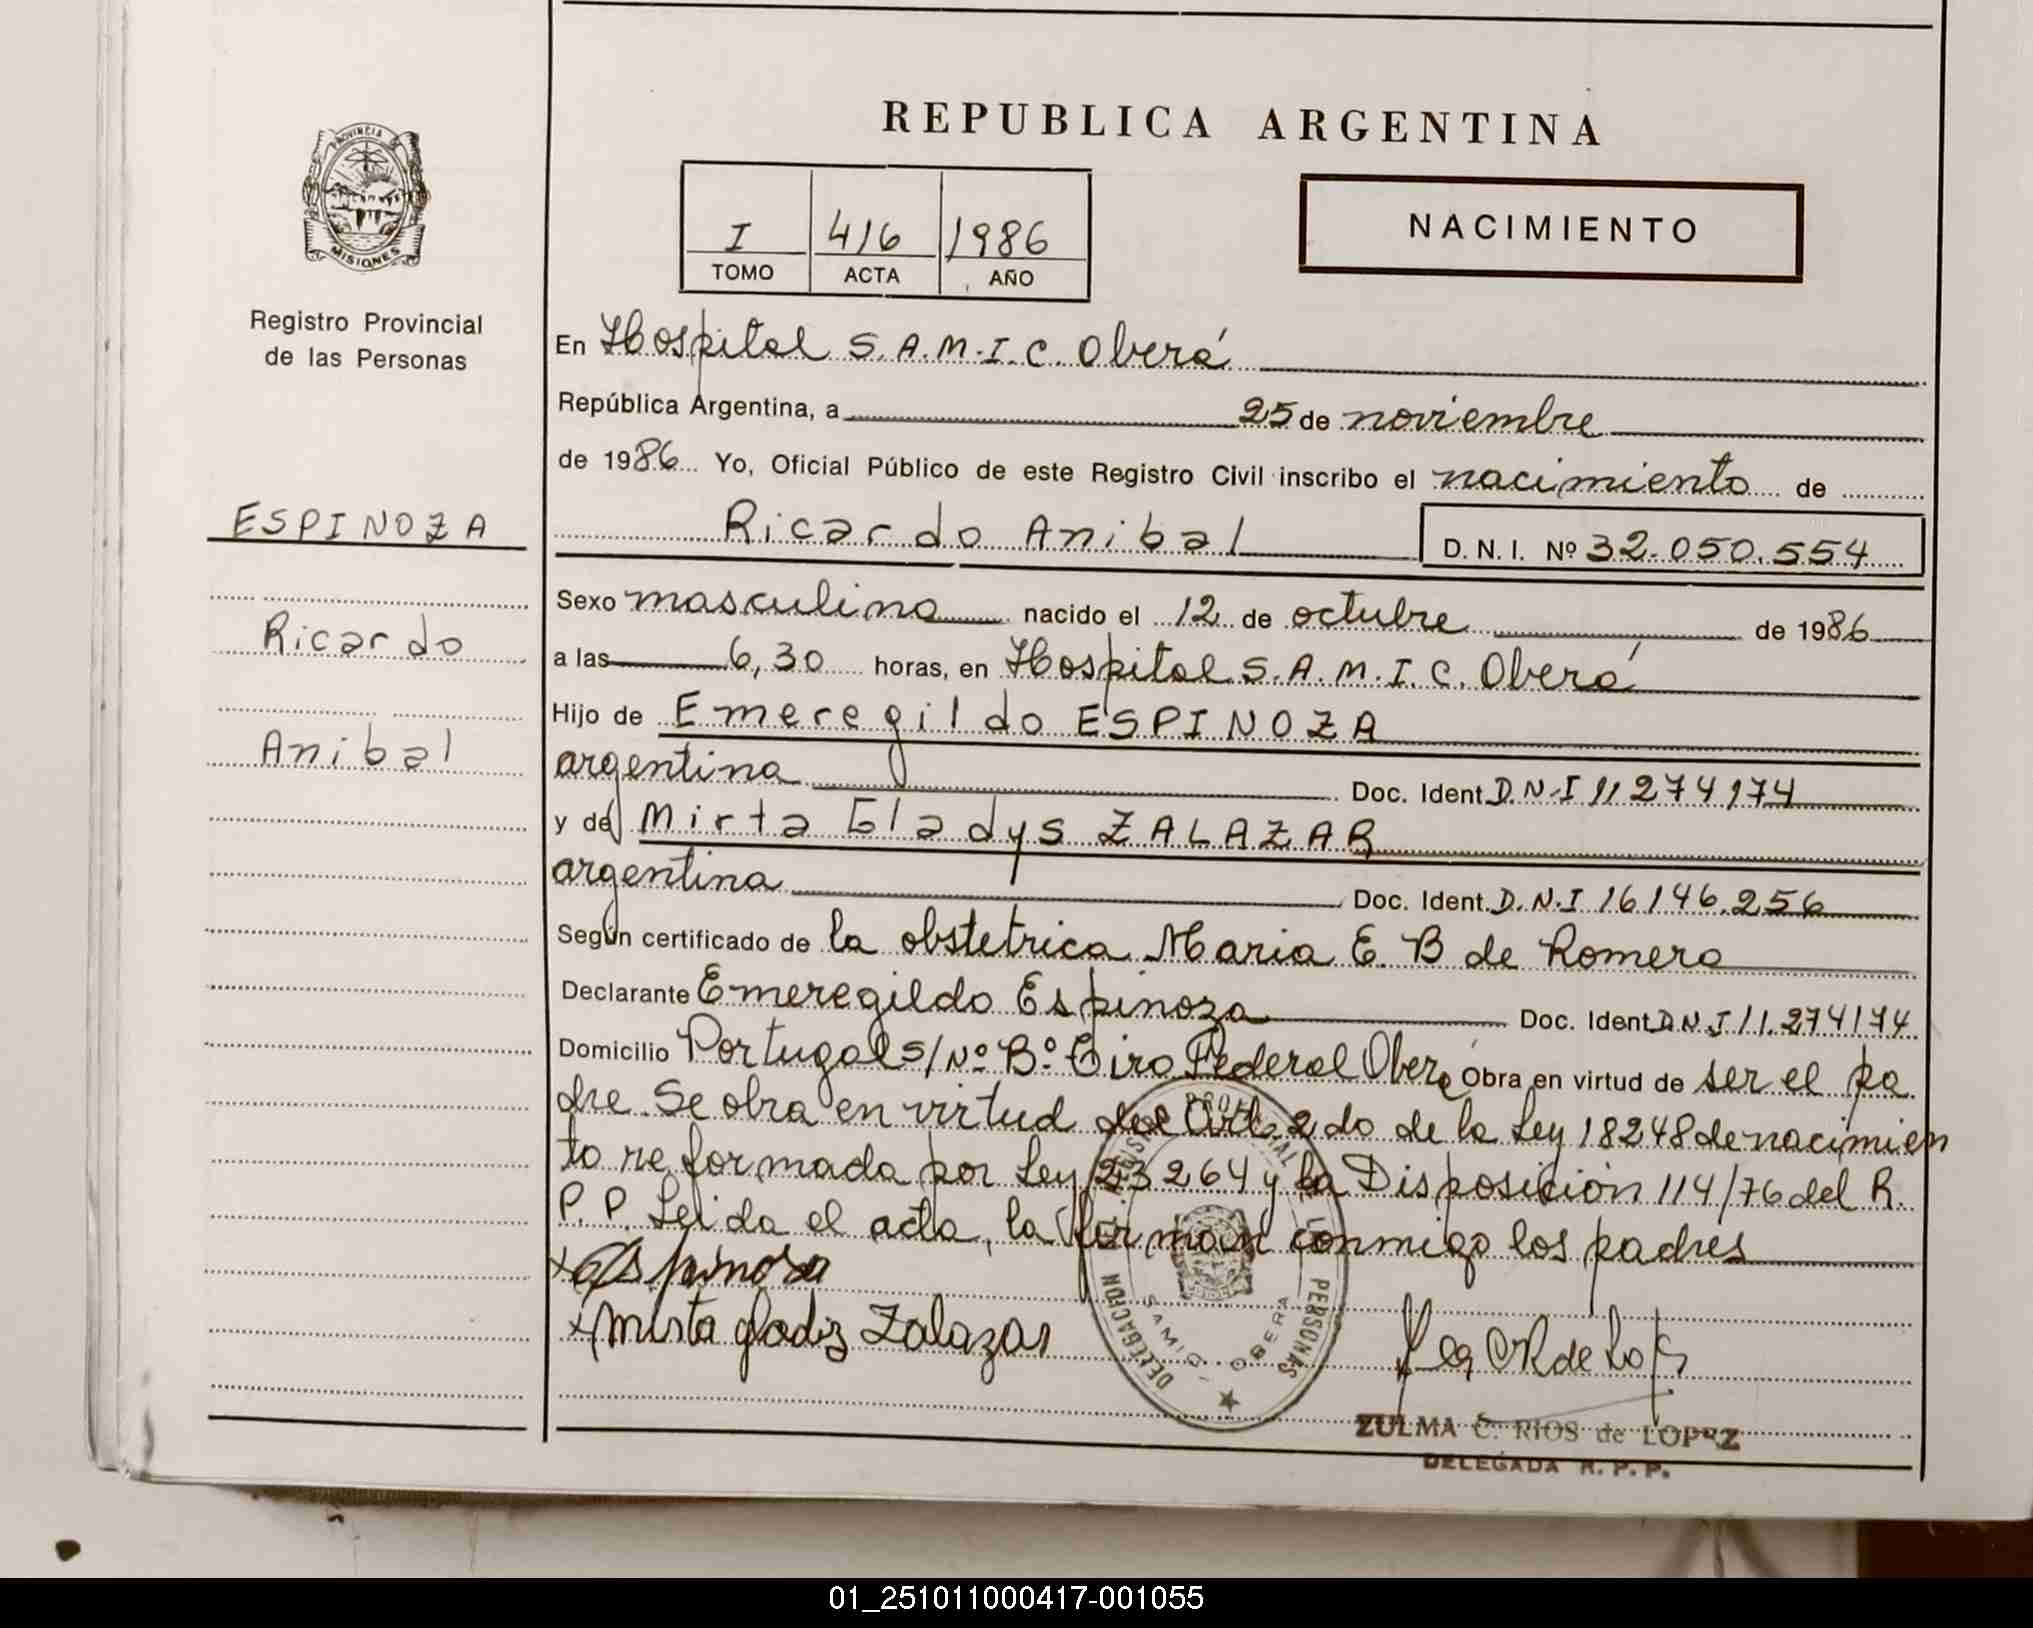 REPUBLICA ARGENTINA
PROVINCIA DE
MISIONES
Registro Provincial
de las Personas
I 416 1986
TOMO ACTA AÑO
NACIMIENTO
ESPINOZA
Ricardo
Anibal
En Hospital S.A.M.I.C. Oberá
República Argentina, a 25 de noviembre
de 1986 Yo, Oficial Público de este Registro Civil inscribo el nacimiento de
Ricardo Anibal D. N. I. Nº 32.050.554
Sexo masculino nacido el 12 de octubre de 1986
a las 6,30 horas, en Hospital S.A.M.I.C. Oberá
Hijo de Emeregildo ESPINOZA
argentina Doc. Ident. D.N.I 11274174
y de Mirta Gladys ZALAZAR
argentina Doc. Ident. D.N.I 16146.256
Según certificado de la obstetrica Maria E. B de Romero
Declarante Emeregildo Espinoza Doc. Ident. D.N.I 11.274174
Domicilio Portugal S/Nº Bº Tiro Federal Oberá Obra en virtud de ser el pa
dre. Se obra en virtud del Art. 2do de la Ley 18248 de nacimien
to reformada por Ley 23264 y la Disposición 114/76 del R.
P. P. Leida el acta, la firman conmigo los padres
x Espinosa
x Mirta gladiz Zalazar
DELEGACION PERSONAS
SAMIC - OBERA
ZULMA C. RIOS de LOPEZ
DELEGADA R.P.P.
01_251011000417-001055